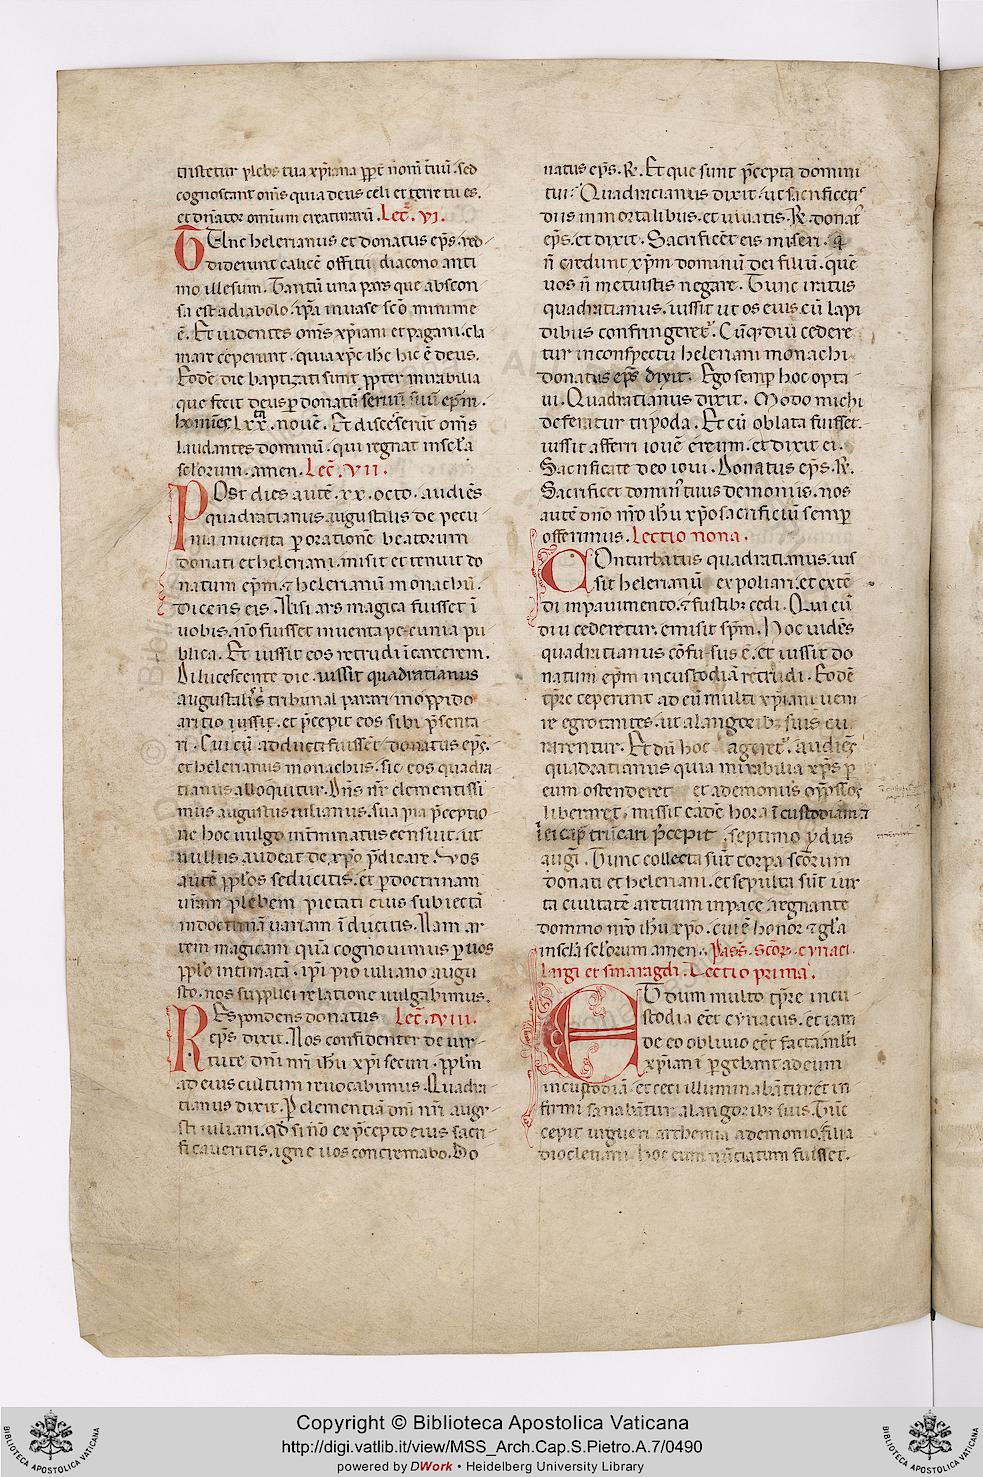 tristetur plebs tua xp̄iana ꝓpt̄ nom̄ tuū. sed
cognoscant om̄s quia deus celi et terre tu es.
et dn̄ator omnium creaturarū. Lec̄. vi.
TUnc helerianus et donatus ep̄s. red
diderunt calicē offitii diacono anti
mo illesum. Tantū una pars que abscon
sa est a diabolo. ip̄a inuase sc̄o minime
ē. Et uidentes om̄s xp̄iani et pagani. cla
mare ceperunt. quia xp̄c ih̄c hic ē deus.
Eodē die baptizati sunt ꝓpter mirabilia
que fecit deus ꝑ donatū seruū. suū ep̄m.
homines lxx. nouē. Et discesserūt om̄s
laudantes dominū. qui regnat in sc̄la
sc̄lorum. amen. Lec̄. vii.
POst dies autē. xx. octo. audiēs
quadratianus augustilis de pecu
nia inuenta ꝑ orationē beatorum
donati et heleriani. misit et tenuit do
natum ep̄m. ⁊ helerianū monachū.
dicens eis. Nisi ars magica fuisset ī
uobis. nō fuisset inuenta pecunia pu
blica. Et iussit eos retrudi ī carcerem.
Dilucescente die. iussit quadratianus
augustalis tribunal parari in oppido
aritio iussit. et p̄cepit eos sibi p̄senta
ri. Cui cū adducti fuissēt. donatus ep̄c.
et helerianus monachus. sic eos quadra
tianus alloquitur. Dn̄s nr̄ clementissi
mus augustus iulianus. sua pia p̄ceptio
ne hoc uulgo intimatus censuit. ut
nullus audeat de xp̄o p̄dicare. Vos
autē pp̄los seducitis. et ꝑ doctrinam
ur̄am plebem pietati eius subiectā
in doctrinā uariam īducitis. Nam ar
tem magicam quā cognouimus ꝑ uos
pp̄lo intimatā. ip̄i pio iuliano augu
sto. nos supplici relatione uulgabimus.
REspondens donatus Lec̄. viii.
ep̄s dixit. Nos confidenter de uir
tute dn̄i nr̄i ih̄u xp̄i securi. pp̄lm
ad eius cultum reuocabimus. Quadra
tianus dixit. Ꝑ clementiā dn̄i nr̄i augu
sti iuliani. qd̄ si nō ex p̄cepto eius sacri
ficaueritis. igne uos concremabo. Do
natus ep̄s. R̄. Et que sunt p̄cepta domini
tui. Quadratianus dixit. ut sacrificetis
diis immortalibus. et uiuatis. R̄. donat᷒
ep̄s. et dixit. Sacrificēt eis miseri. q̄
n̄ credunt xp̄m dominū dei filiū. quē
uos n̄ metuistis negare. Tunc iratus
quadratianus. iussit ut os eius cū lapi
dibus confringeret᷒. Cū qr̄diū cedere
tur in conspectu heleriani monachi
donatus ep̄s dixit. Ego semp̄ hoc opta
ui. Quadratianus dixit. Modo michi
deferatur tripoda. Et cū oblata fuisset.
iussit afferri iouē ereum. et dixit ei.
Sacrificate deo ioui. Donatus ep̄s. R̄.
Sacrificet domin᷒ tuus demoniis. nos
autē dn̄o nr̄o ih̄u xp̄o sacrificiū semꝑ
offerimus. Lectio nona.
COnturbatus quadratianus. ius
sit helerianū expoliari. et extē
di in pauimento. ⁊ fustib; cedi. Qui cū
diu cederetur. emisit sp̄m. Hoc uidēs
quadratianus cōfusus ē. et iussit do
natum ep̄m in custodiā retrudi. Eodē
tp̄re ceperunt ad eū multi xp̄iani ueni
re egrotantes. ut a langorib; suis cu
rarentur. Et dū hoc ageret᷒. audiēs
quadratianus quia mirabilia xp̄s ꝑ
eum ostenderet et a demoniis opp̄ssos
liberaret. missit eadē hora ī custodiam. ⁊
ī ei cap̄ trūcari p̄cepit. septimo ydus
augī. Tunc collecta sūt corpa sc̄orum
donati et heleriani. et sepulta sūt iux
ta ciuitatē aretium in pace. regnante
domino nr̄o ih̄u xp̄o. cui ē honor ⁊ gl̄a
in sc̄la sc̄lorum amen. Pass̄. sc̄or. cyriaci.
largi et smaragdi. Lectio prima.
ET dum multo tp̄re in cu
stodia eēt cyriacus. et iam
de eo obliuio eēt facta. mlti
xp̄iani ꝑgebant ad eum
in custodiā. et ceci illuminabātur. et in
firmi sanabātur a langorib; suis. Tūc
cepit urgueri arthemia a demonio. filia
diocletiani. hoc cum nūciatum fuisset.
Copyright © Biblioteca Apostolica Vaticana
http://digi.vatlib.it/view/MSS_Arch.Cap.S.Pietro.A.7/0490
powered by DWork • Heidelberg University Library
BIBLIOTECA APOSTOLICA VATICANA
BIBLIOTECA APOSTOLICA VATICANA